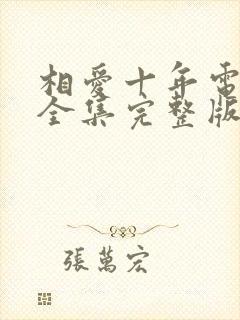 相愛十年電
全集完整版
張萬宏